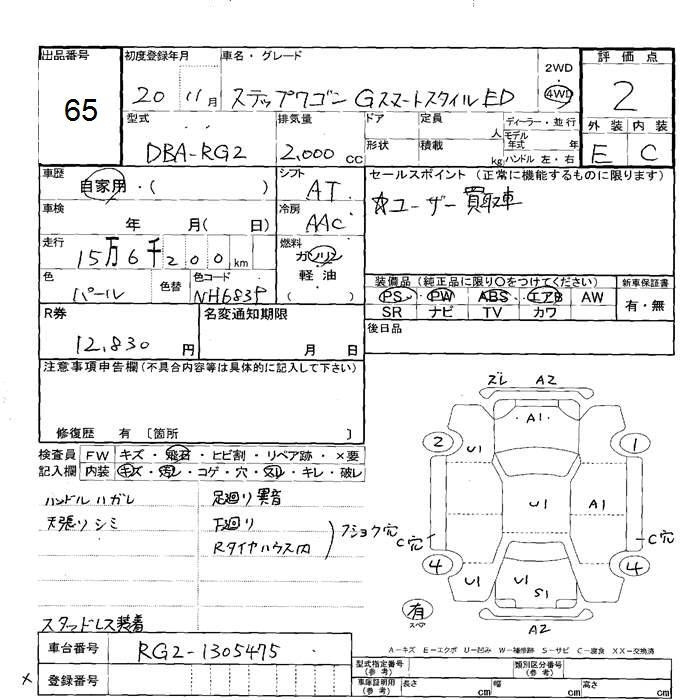 出品番号 初度登録年月 車名・グレード 2WD 評価点
65 20 11月 ステップワゴン GスマートスタイルED 4WD 2
型式 排気量 ドア 定員 ディーラー・並行 外装 内装
人 モデル年式 年
DBA-RG2 2,000cc 形状 積載 kg ハンドル 左・右 E C
車歴 自家用・( ) シフト AT セールスポイント (正常に機能するものに限ります)
車検 年 月( 日) 冷房 AAC ☆ユーザー買取車
走行 15万6千200km 燃料 ガソリン
軽油
( )
色 パール 色替 色コード NH683P
装備品 (純正品に限り○をつけてください) 新車保証書
PS PW ABS エアB AW 有・無
SR ナビ TV カワ
R券 12,830円 名変通知期限 月 日 後日品
注意事項申告欄 (不具合内容等は具体的に記入して下さい)
修復歴 有 〔箇所 〕
検査員 FW キズ・飛石・ヒビ割・リペア跡・×要
記入欄 内装 キズ・汚レ・コゲ・穴・スレ・キレ・破レ
ハンドルハガレ 足廻り異音
天張りシミ 下廻り フショク穴
Rタイヤハウス内
スタッドレス装着
ズレ A2
A1
2 U1 1
U1 A1
C穴 C穴
4 U1 U1 S1 4
有
スペア
A2
A-キズ E-エクボ U-凹み W-補修跡 S-サビ C-腐食 XX-交換済
車台番号 RG2-1305475
× 登録番号
型式指定番号(参考) 類別区分番号(参考)
車庫証明用(参考) 長さ cm 幅 cm 高さ cm